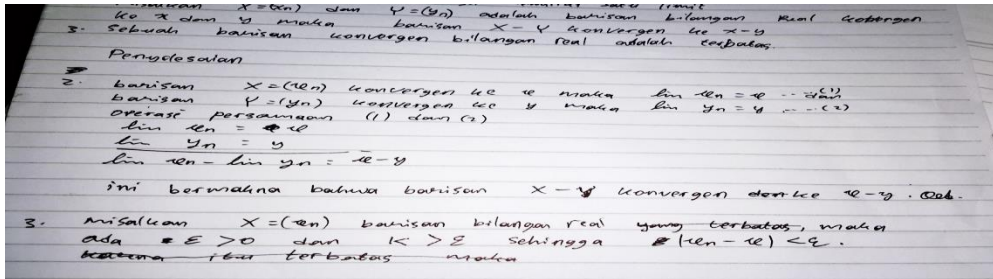 X = (xn) dan Y = (yn) adalah barisan bilangan real konvergen
ke x dan y maka barisan X - Y konvergen ke x-y
3. Sebuah barisan konvergen bilangan real adalah terbatas.
Penyelesaian
2. barisan X = (xn) konvergen ke x maka lim xn = x ... (1)
dan
barisan Y = (yn) konvergen ke y maka lim yn = y ... (2)
operasi persamaan (1) dan (2)
lim xn = x
lim yn = y
lim xn - lim yn = x-y
ini bermakna bahwa barisan X - Y konvergen ke x-y. Qed.
3. Misalkan X = (xn) barisan bilangan real yang terbatas, maka
ada ε > 0 dan K > ε sehingga |xn - x| < ε.
karena itu terbatas maka